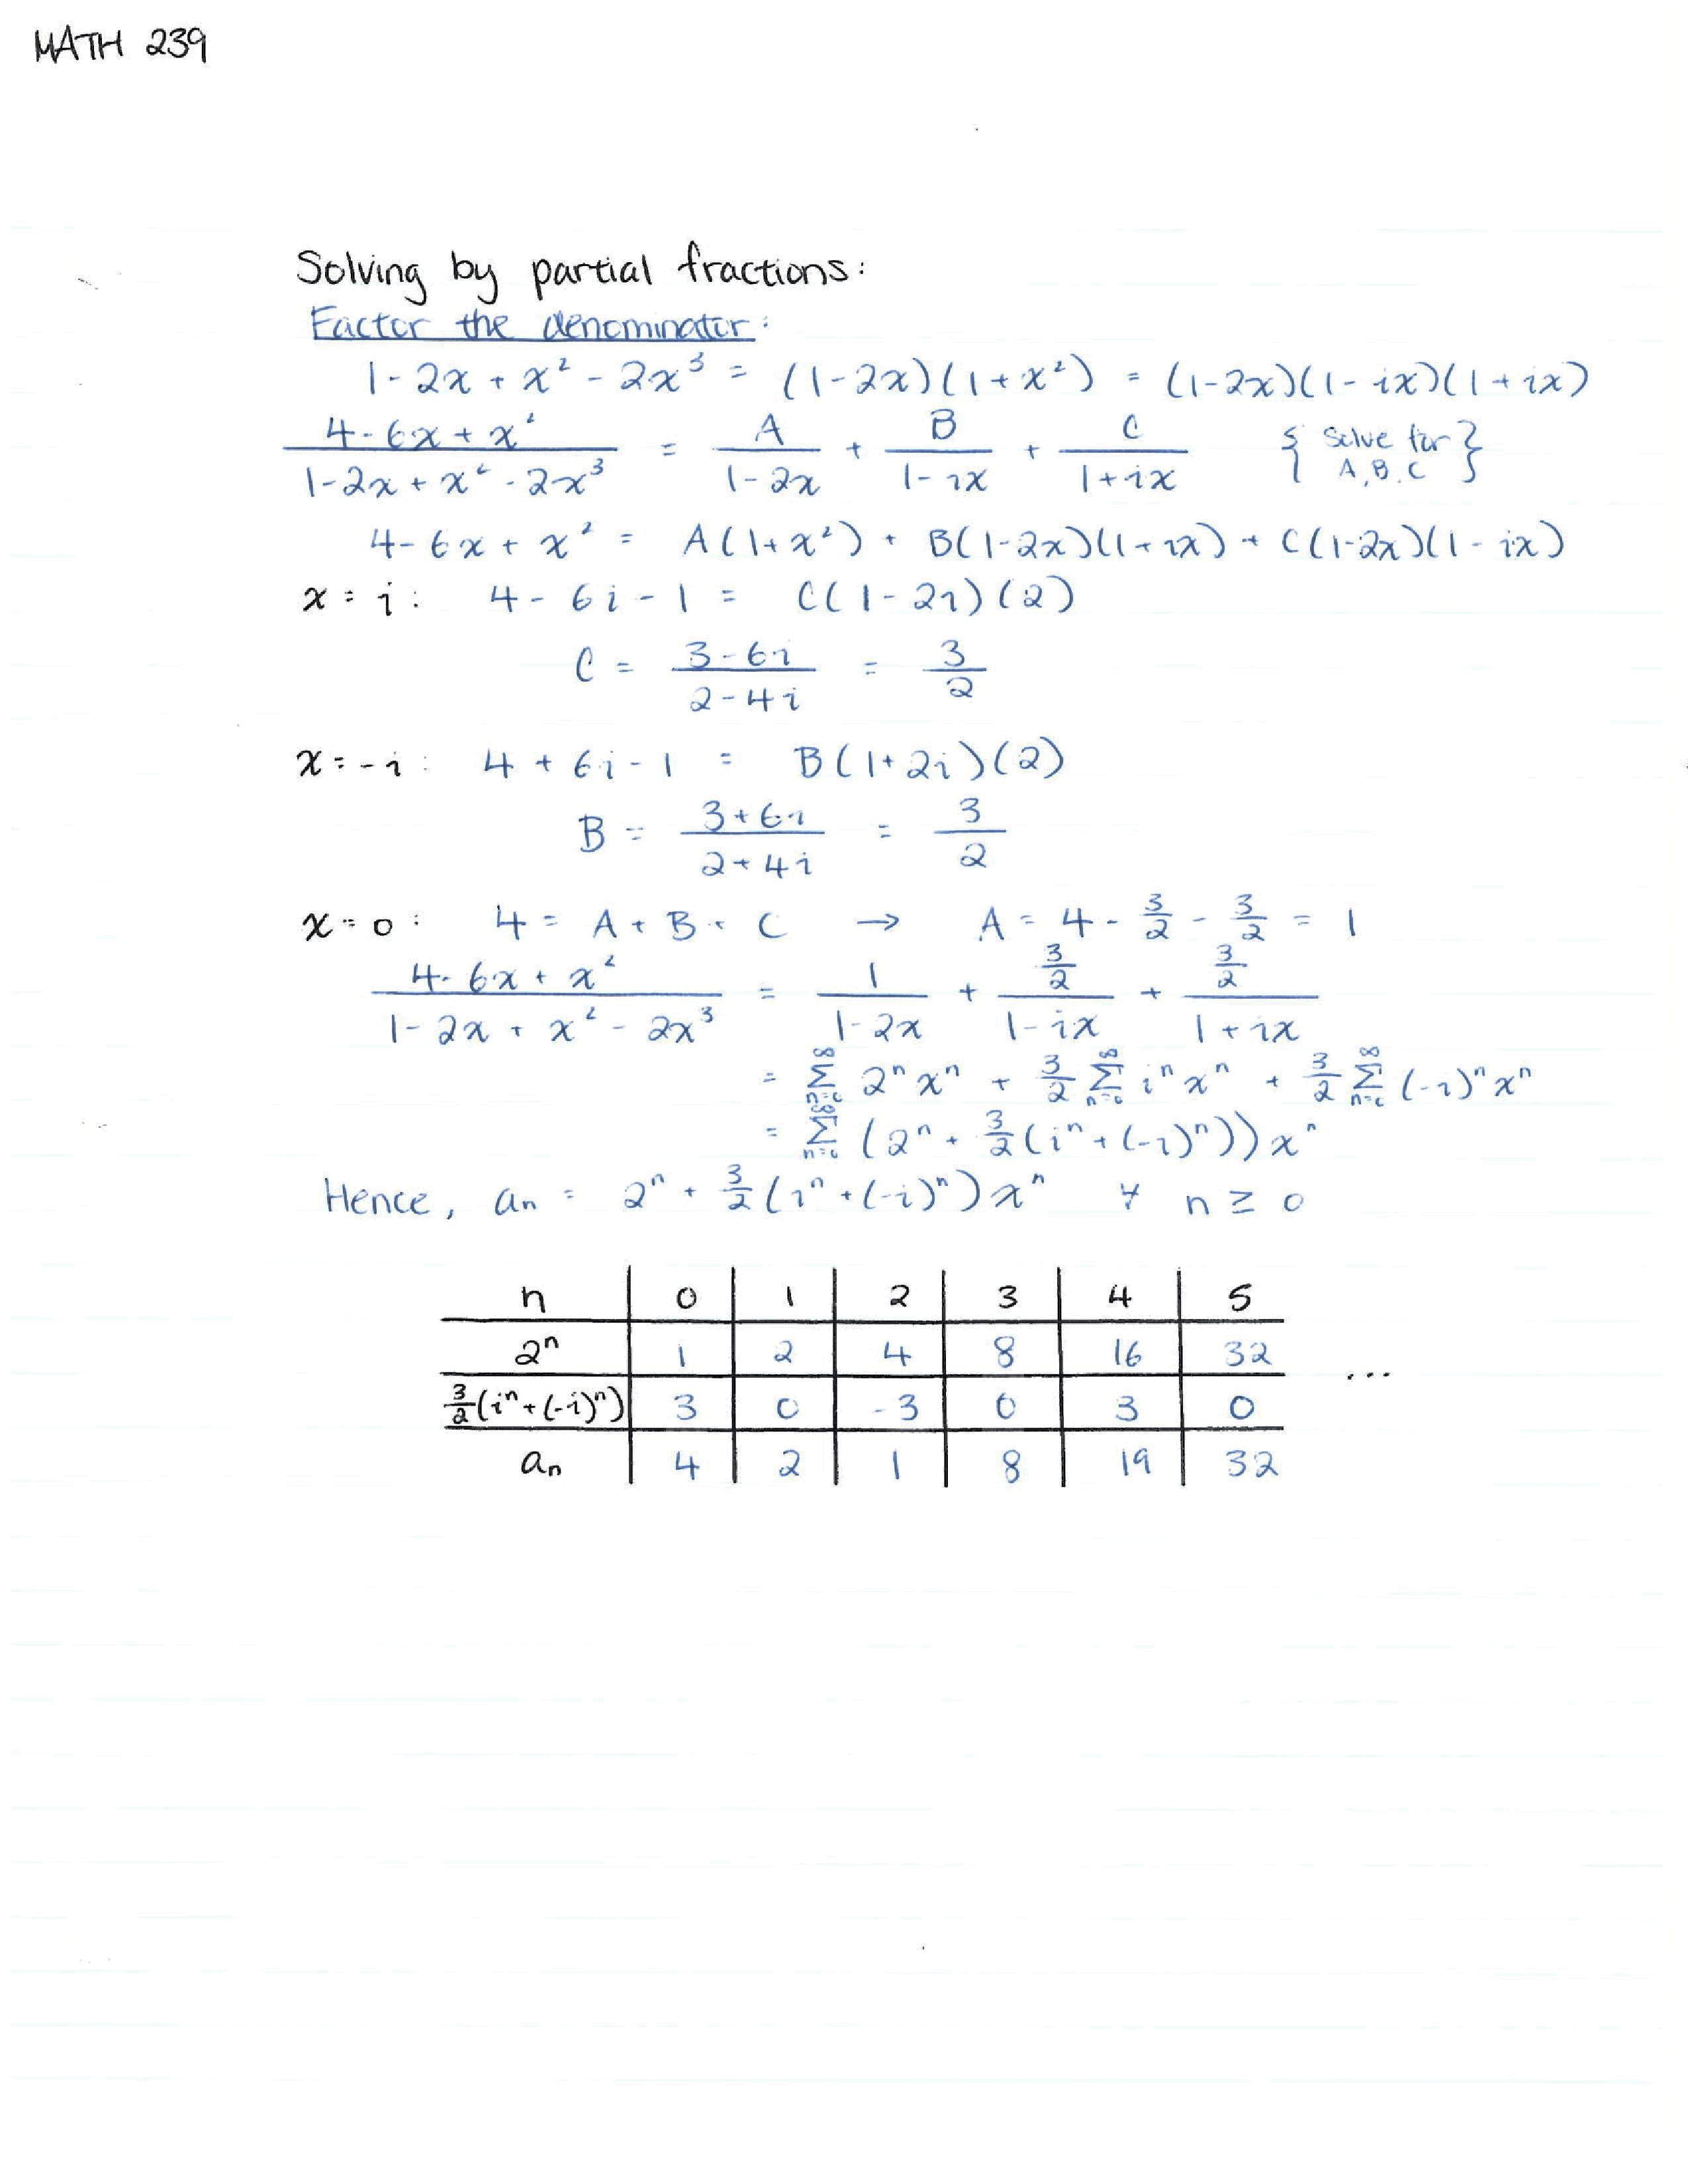 MATH 239
Solving by partial fractions:
Factor the denominator:
1 - 2x + x² - 2x³ = (1-2x)(1+x²) = (1-2x)(1-ix)(1+ix)
(4-6x+x²)/(1-2x+x²-2x³) = A/(1-2x) + B/(1-ix) + C/(1+ix) { Solve for A, B, C }
4-6x+x² = A(1+x²) + B(1-2x)(1+ix) + C(1-2x)(1-ix)
x = i: 4 - 6i - 1 = C(1-2i)(2)
C = (3-6i)/(2-4i) = 3/2
x = -i: 4 + 6i - 1 = B(1+2i)(2)
B = (3+6i)/(2+4i) = 3/2
x = 0: 4 = A + B + C → A = 4 - 3/2 - 3/2 = 1
(4-6x+x²)/(1-2x+x²-2x³) = 1/(1-2x) + (3/2)/(1-ix) + (3/2)/(1+ix)
= ∑_{n=0}^{∞} 2ⁿxⁿ + 3/2 ∑_{n=0}^{∞} iⁿxⁿ + 3/2 ∑_{n=0}^{∞} (-i)ⁿxⁿ
= ∑_{n=0}^{∞} (2ⁿ + 3/2(iⁿ + (-i)ⁿ))xⁿ
Hence, aₙ = 2ⁿ + 3/2(iⁿ + (-i)ⁿ)xⁿ ∀ n ≥ 0
n 0 1 2 3 4 5
2ⁿ 1 2 4 8 16 32 ...
3/2(iⁿ+(-i)ⁿ) 3 0 -3 0 3 0
aₙ 4 2 1 8 19 32